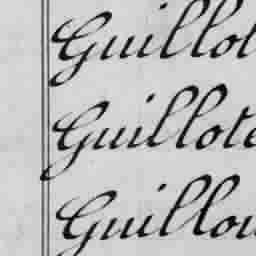 Guillot
Guillote
Guillou